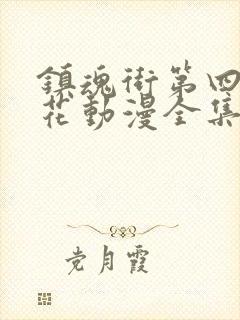 鎮魂街第四
花動漫全集
党月霞